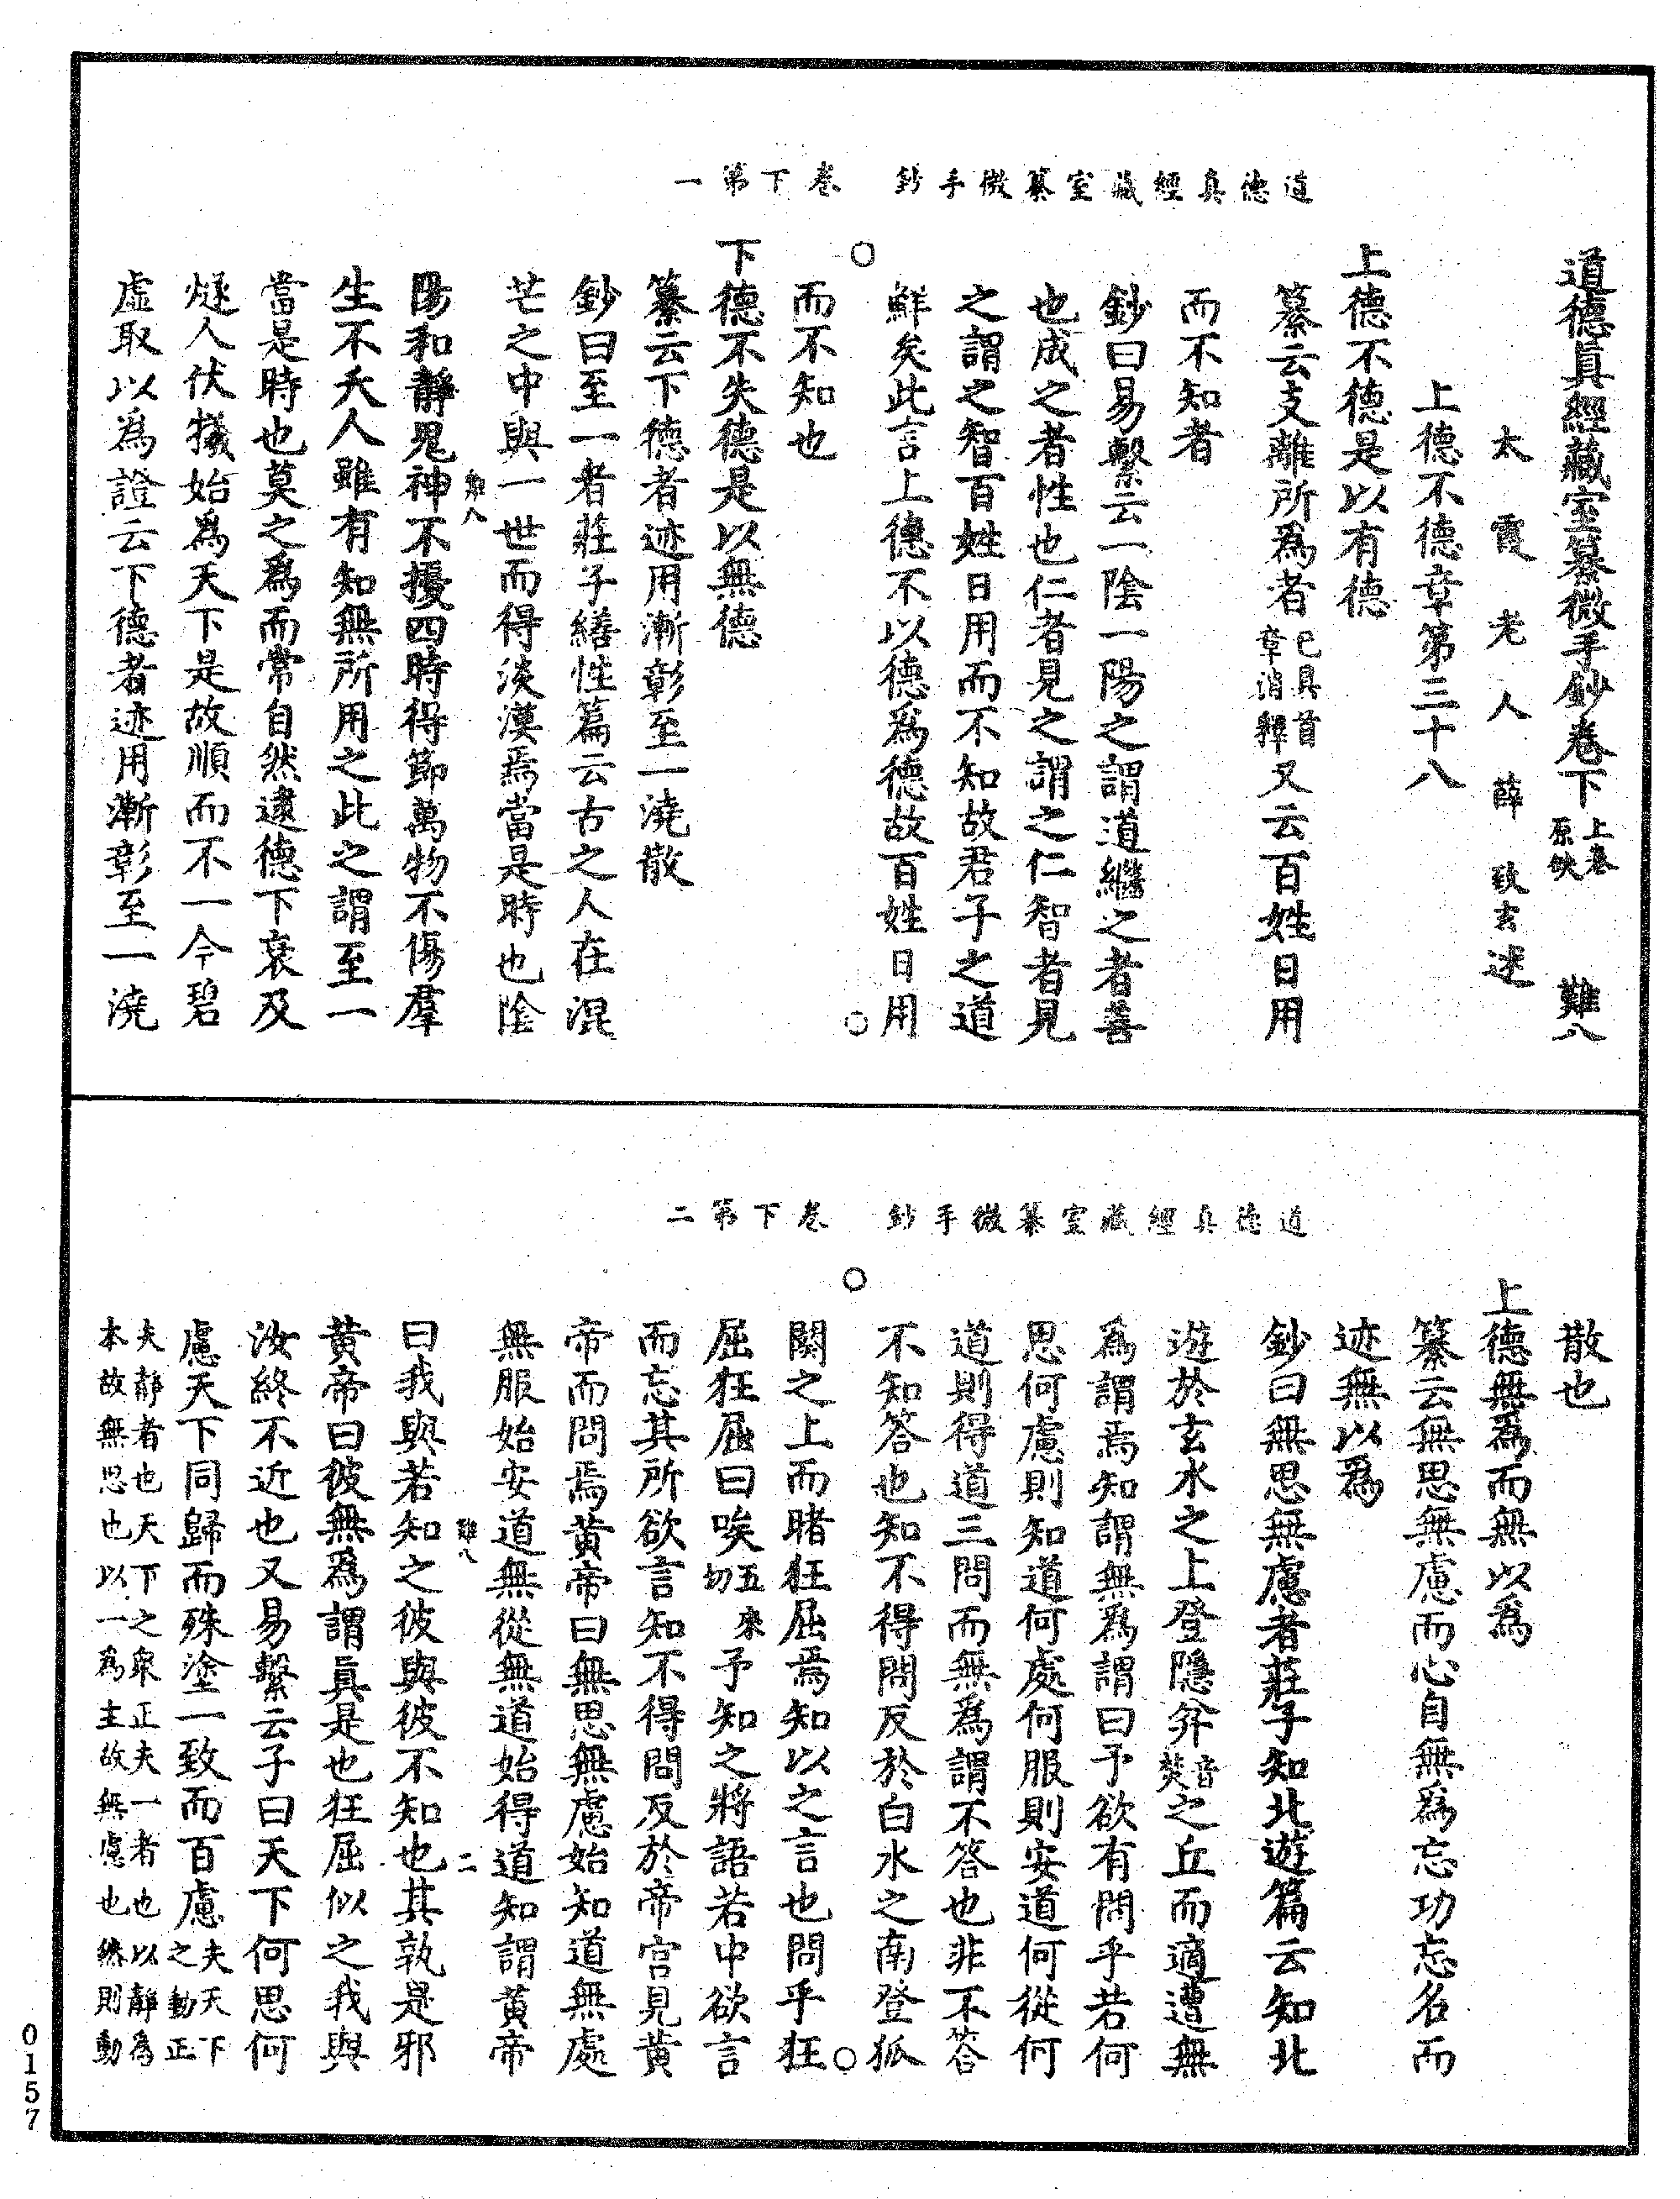 道德真經藏室纂微手鈔　卷下第一
道德眞經藏室纂微手鈔卷下上卷原缺　難八
太霞老人薛致玄述
上德不德章第三十八
上德不德是以有德
纂云支離所爲者已具首章消釋又云百姓日用
而不知者
鈔曰易繫云一陰一陽之謂道繼之者善
也成之者性也仁者見之謂之仁智者見
之謂之智百姓日用而不知故君子之道
鮮矣此言上德不以德爲德故百姓日用
而不知也
下德不失德是以無德
纂云下德者迹用漸彰至一澆散
鈔曰至一者莊子繕性篇云古之人在混
芒之中與一世而得淡漠焉當是時也陰
難八
陽和靜鬼神不擾四時得節萬物不傷羣
生不夭人雖有知無所用之此之謂至一
當是時也莫之爲而常自然逮德下衰及
燧人伏犧始爲天下是故順而不一今碧
虛取以爲證云下德者迹用漸彰至一澆
道德真經藏室纂微手鈔　卷下第二
散也
上德無爲而無以爲
纂云無思無慮而心自無爲忘功忘名而
迹無以爲
鈔曰無思無慮者莊子知北遊篇云知北
遊於玄水之上登隱弅音焚之丘而適遭無
爲謂焉知謂無爲謂曰予欲有問乎若何
思何慮則知道何處何服則安道何從何
道則得道三問而無爲謂不答也非不答
不知答也知不得問反於白水之南登狐
闋之上而睹狂屈焉知以之言也問乎狂
屈狂屈曰唉五來切予知之將語若中欲言
而忘其所欲言知不得問反於帝宮見黃
帝而問焉黃帝曰無思無慮始知道無處
無服始安道無從無道始得道知謂黃帝
難八　二
曰我與若知之彼與彼不知也其孰是邪
黃帝曰彼無爲謂眞是也狂屈似之我與
汝終不近也又易繫云子曰天下何思何
慮天下同歸而殊塗一致而百慮夫天下之動正
夫靜者也天下之衆正夫一者也以靜爲
本故無思也以一爲主故無慮也然則動
0157